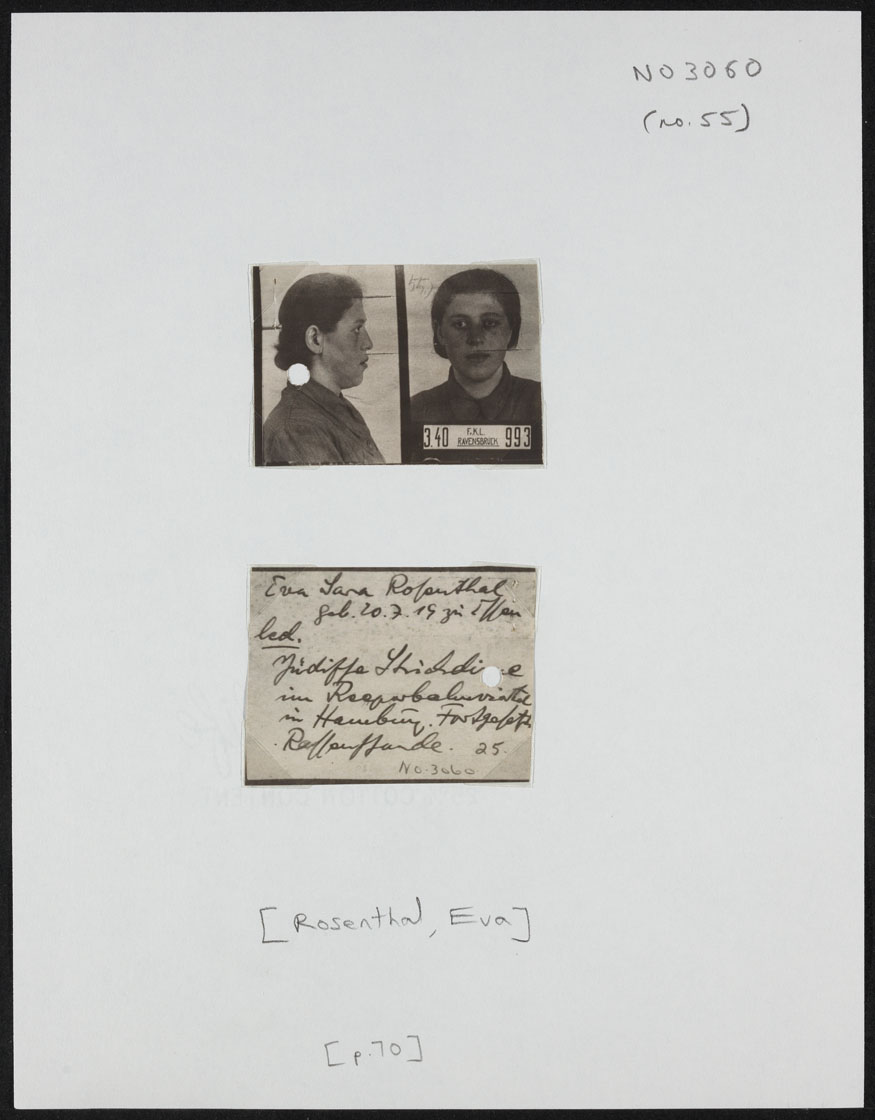 NO3060
(no. 55)
3.40 F.K.L. RAVENSBRÜCK 993
Eva Sara Rosenthal
geb. 20.7.19 zu Essen
led.
Jüdische
im Reeperbahnviertel
in Hamburg. Fortgesetzte
Rassenschande. 25.
NO-3060
[Rosenthal, Eva]
[p.70]